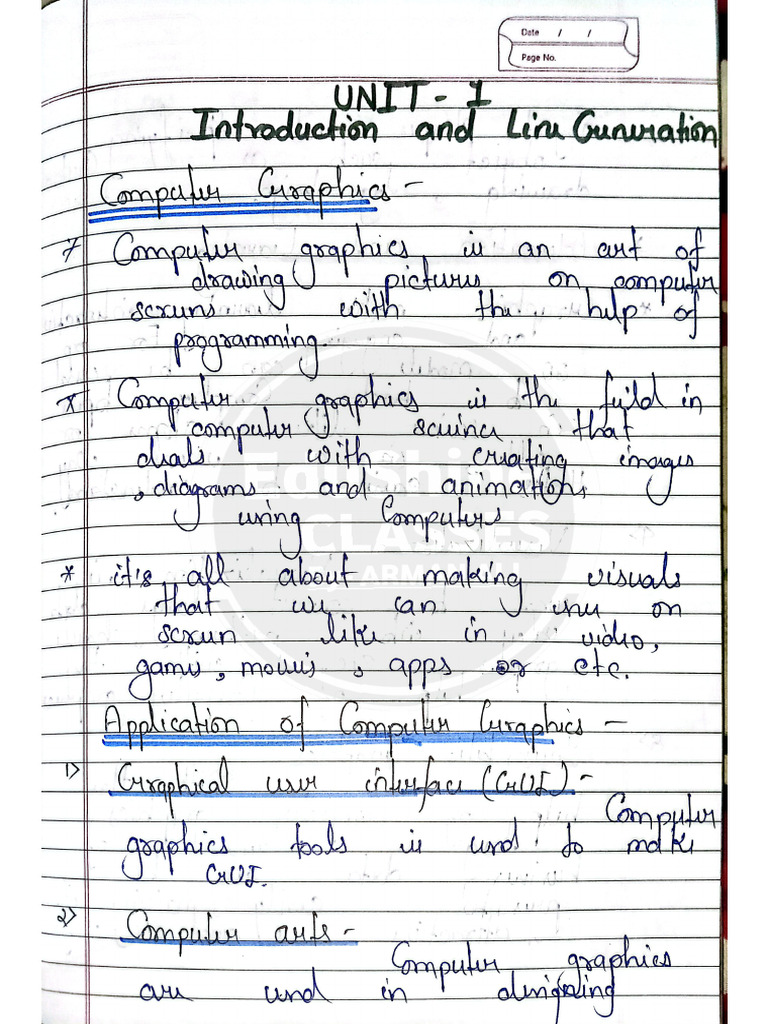 Date / /
Page No.
UNIT - 1
Introduction and Line Generation
Computer Graphics -
* Computer graphics is an art of
drawing pictures on computer
screens with the help of
programming.
* Computer graphics is the feild in
computer science that
deals with creating images
, diagrams and animations
using Computers
* it's all about making visuals
that we can
on
screen like in video,
games, movies, apps or etc.
Application of Computer Graphics -
1) Graphical user interface (GUI) -
Computer
graphics tools is used to make
GUI.
2) Computer arts -
Computer graphics
are used in designing